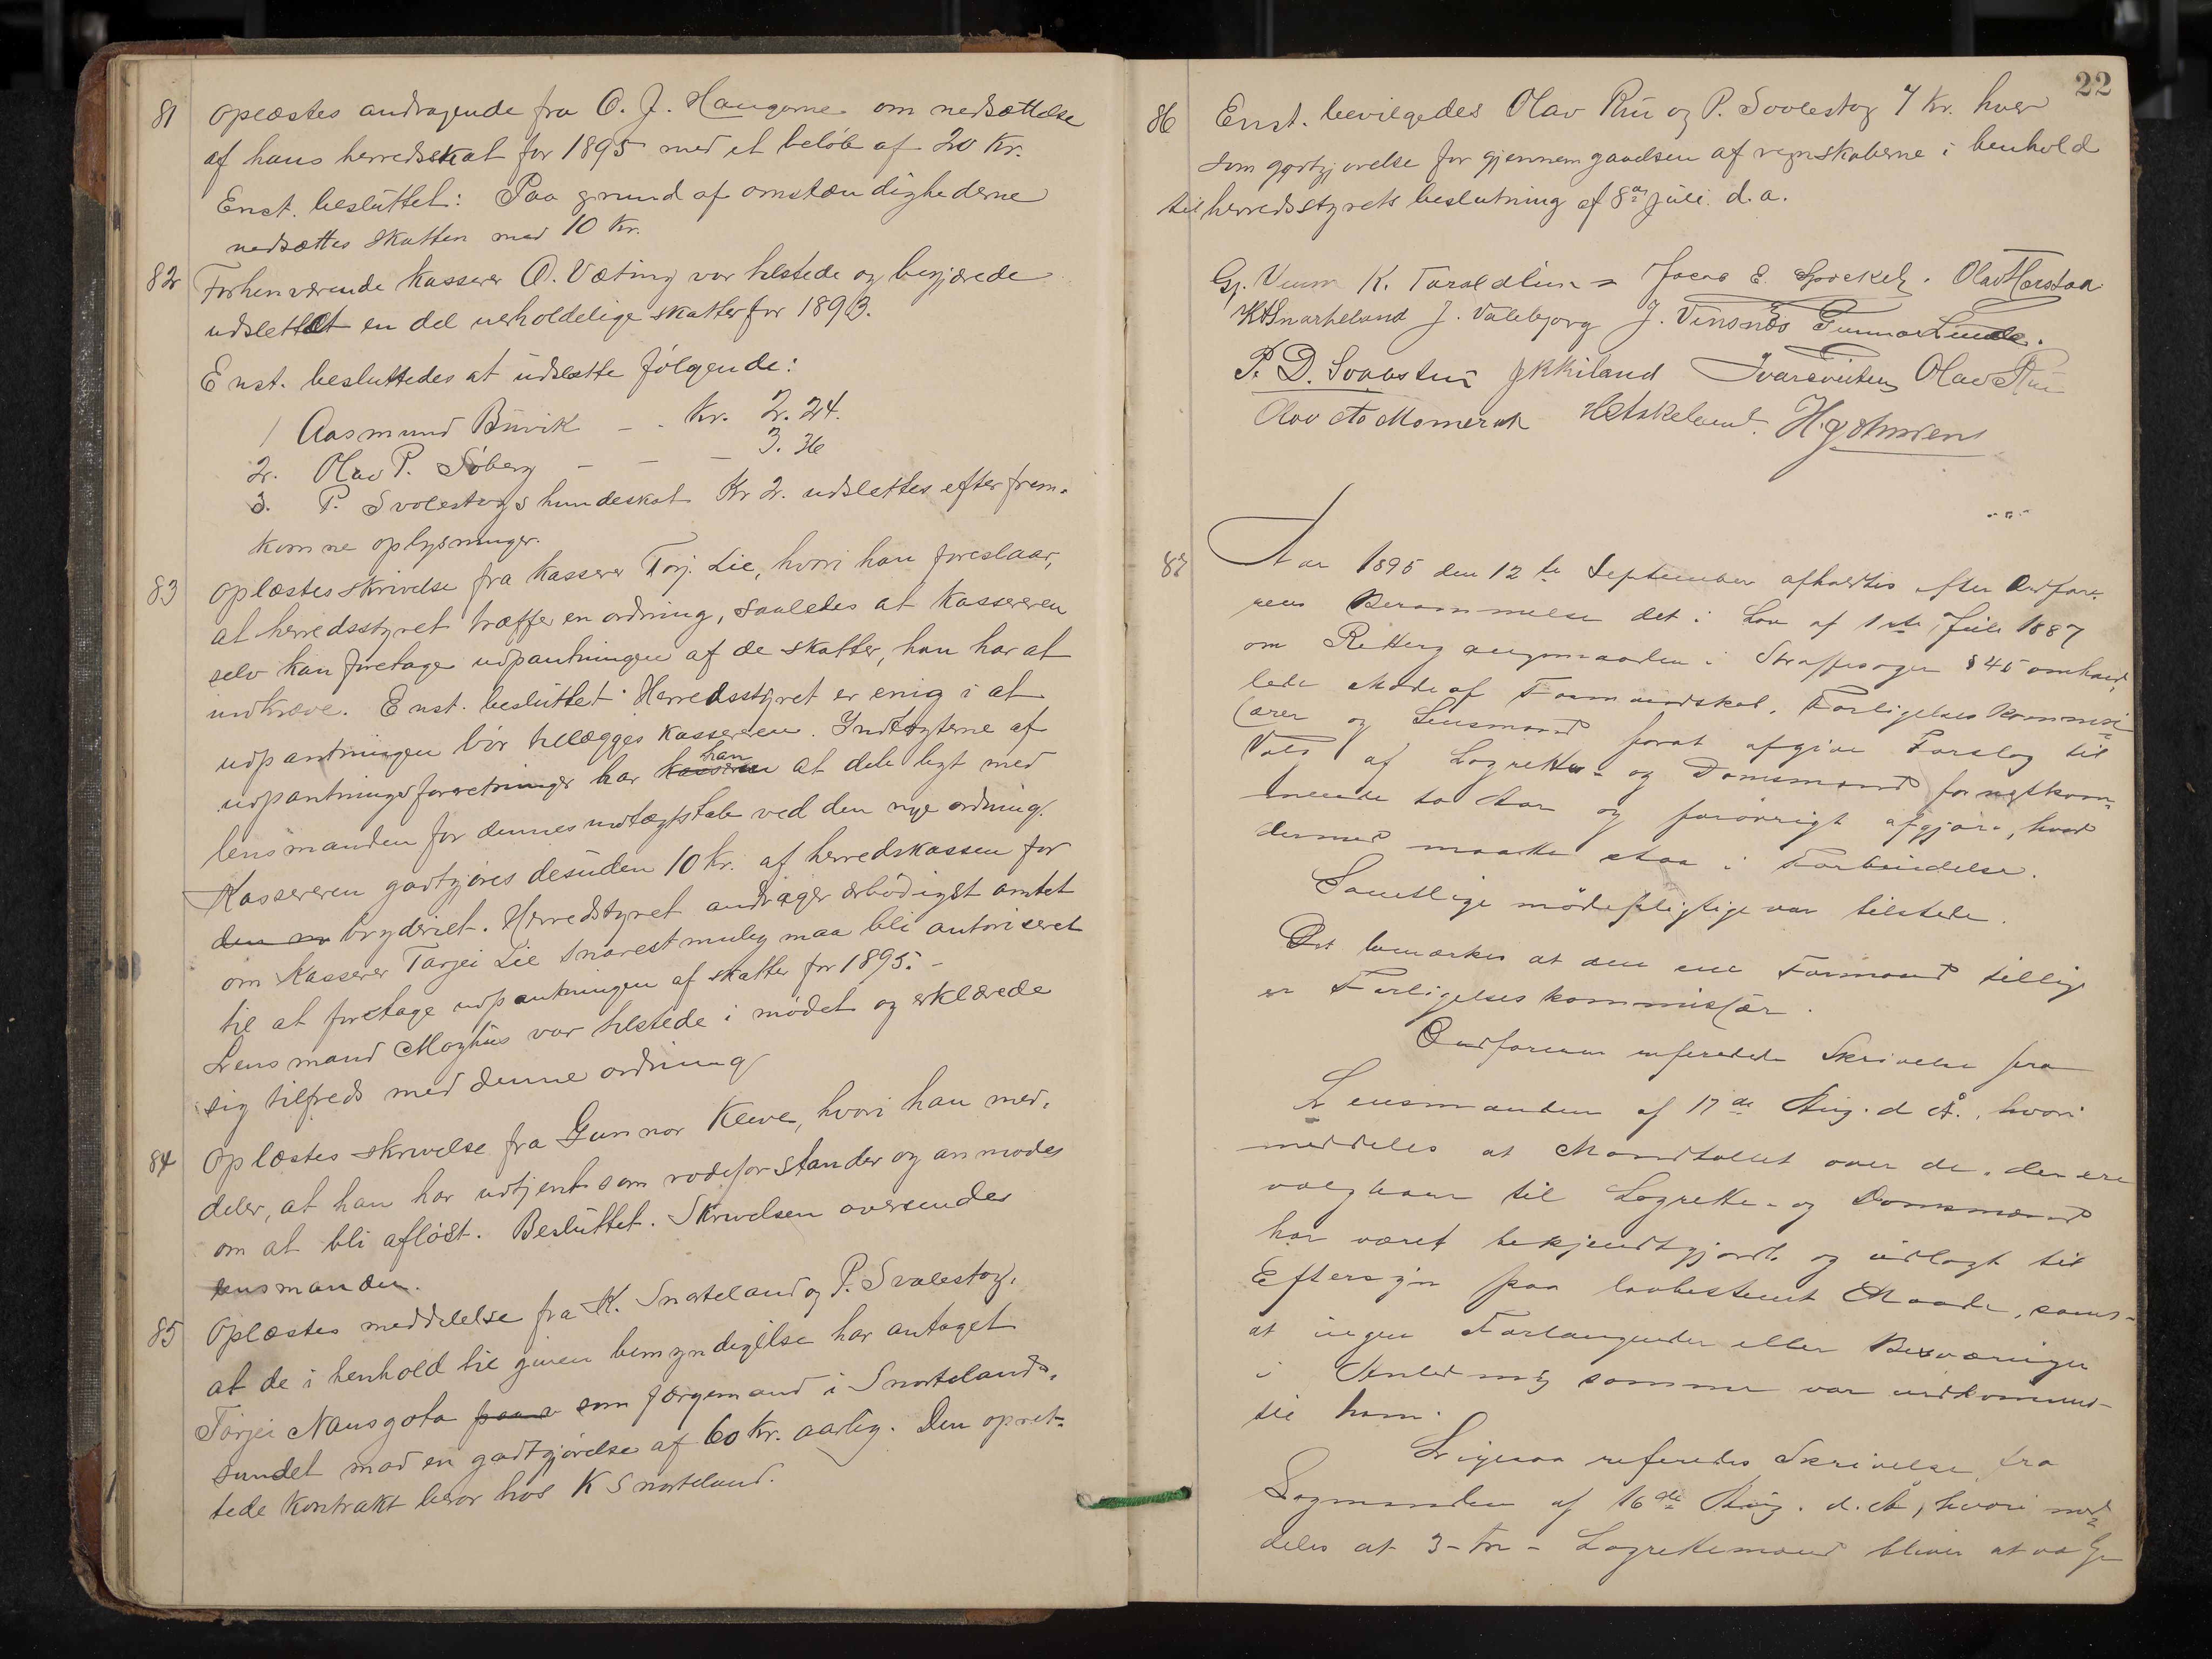 81 Oplæstes andragende fra O. J. Haugerne om nedsættelse
af hans herredsskat for 1895 med et beløb af 20 Kr.
Enst. besluttet: Paa grund af omstændighederne
nedsættes skatten med 10 Kr.
82 Forhenværende kasserer O. Væting var tilstede og begjærede
udslettet en del uerholdelige skatter for 1893.
Enst. besluttedes at udslette følgende:
1 Aasmund Buvik - - Kr. 2.24.
2. Olav P. Söberg - - - 3.36
3. P. Svolestogs hundeskat Kr 2. udslettes efter frem-
komne oplysninger.
83 Oplæstes skrivelse fra kasserer Torj. Lie, hvori han foreslaar,
at herredsstyret træffer en ordning, saaledes at kassereren
selv kan foretage udpantningen af de skatter, han har at
indkræve. Enst. besluttet: Herredsstyret er enig i at
udpantningen bör tillægges kassereren. Indtægterne af
udpantningsforretninger har han at dele ligt med
lensmanden for dennes indtægtstab ved den nye ordning.
Kassereren godtgjöres desuden 10 Kr. af herredskassen for
den m bryderiet. Herredstyret andrager ærbödigst amtet
om Kasserer Tarjei Lie snarest mulig maa bli autoriseret
til at foretage udpantningen af skatter for 1895. -
Lensmand Moghus var tilstede i mödet og erklærede
sig tilfreds med denne ordning
84 Oplæstes skrivelse fra Gunnar Kleve, hvori han med-
deler, at han har udtjent som rodeforstander og anmodes
om at bli aflöst. Besluttet. Skrivelsen oversendes
lensmanden.
85 Oplæstes meddelelse fra K. Snarteland og P. Svalestog,
at de i henhold til given bemyndigelse har antaget
Tarjei Nausgota som færgemand i Snartelands-
sundet mod en godtgjörelse af 60 Kr. aarlig. Den opret-
tede kontrakt beror hos K Snarteland.
22
86 Enst. bevilgedes Olav Rui og P. Svolestog 7 Kr. hver
som godtgjörelse for gjennemgaaelsen af regnskaberne i henhold
til herredsstyrets beslutning af 8de juli d.a.
Gj. Veum K. Taraldlien Jacob E. Olav Harstad
K Snarteland J. Valebjorg J. Vinsnes Gunnar Lunde.
P. D. Svalestu J K Kiland Ivar Tveiten Olav Rui
Olav Momrak H Askeland. H.
87 Aar 1895 den 12te September afholdtes efter Ordföre-
rens Berammelse det i Lov af 1ste Juli 1887
om Rettergangsmaaden i Straffesager § 45 omhand-
lede Møde af Formandskab, Forligelseskommis-
særer og Lensmand forat afgive Forslag til
Valg af Lagrette- og Domsmænd for nestkom-
mende to Aar og forövrigt afgjöre, hvad
dermed maatte staa i Forbindelse.
Samtlige mödepligtige var tilstede.
Det bemærkes at den ene Formand tillige
er Forligelseskommissær.
Ordföreren refererede Skrivelse fra
Lensmanden af 17de Aug. d. A., hvori
meddeles at Mandtallet over de, der ere
valgbare til Lagrette- og Domsmænd
har været bekjendtgjordt og udlagt til
Eftersyn paa lovbestemt Maade, samt
at ingen Forlangender eller Besværinger
i Anledning samme var indkommet
til ham.
Ligesaa refereredes Skrivelse fra
Sagmanden af 16de Aug. d. A, hvori med-
deles at 3 - tre - Lagrettemænd bliver at vælge